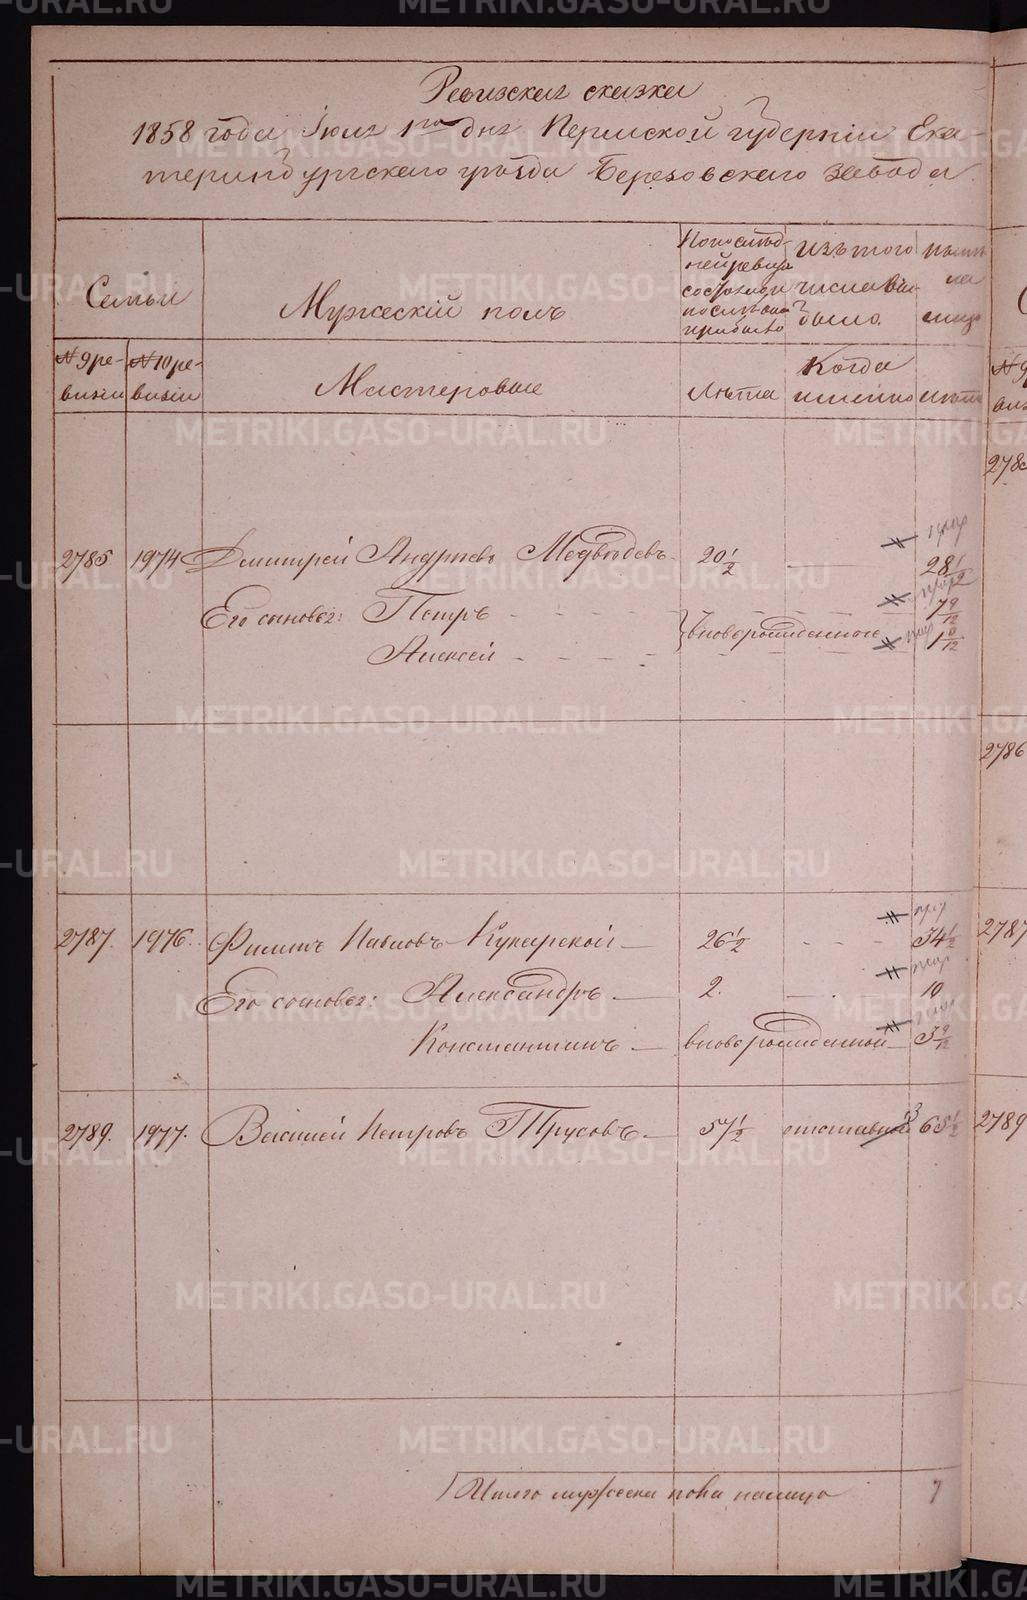 Ревизская сказка
1858 года Iюля 1го дня Пермской губернiи Ека-
теринбургскаго уѣзда Березовскаго завода
Семьи
Мужескiй полъ
По послѣд-
ней ревизiи
состояло и
после того
прибыло
Изъ того
числа вы-
было.
Нынѣ
на
лицо
№ 9 ре-
визiи
№ 10 ре-
визiи
Мастеровые
Лѣта
Когда
именно
лѣта
2785 1974 Дмитрей Андреевъ Медвѣдевъ 20 1/2 28 1/2
Его сыновья: Петръ 7 9/12
новорожденные
Алексей
2786
2787. 1976. Филипъ Павловъ Кукарской 26 1/2 34 1/2
2787
Его сыновья: Александръ 2. 10
Константинъ вноворожденной 3 9/12
2789. 1977. Василей Петровъ Трусовъ 57 1/2 отставной 65 1/2
2789
Итого мужеска пола налицо 7
METRIKI.GASO-URAL.RU